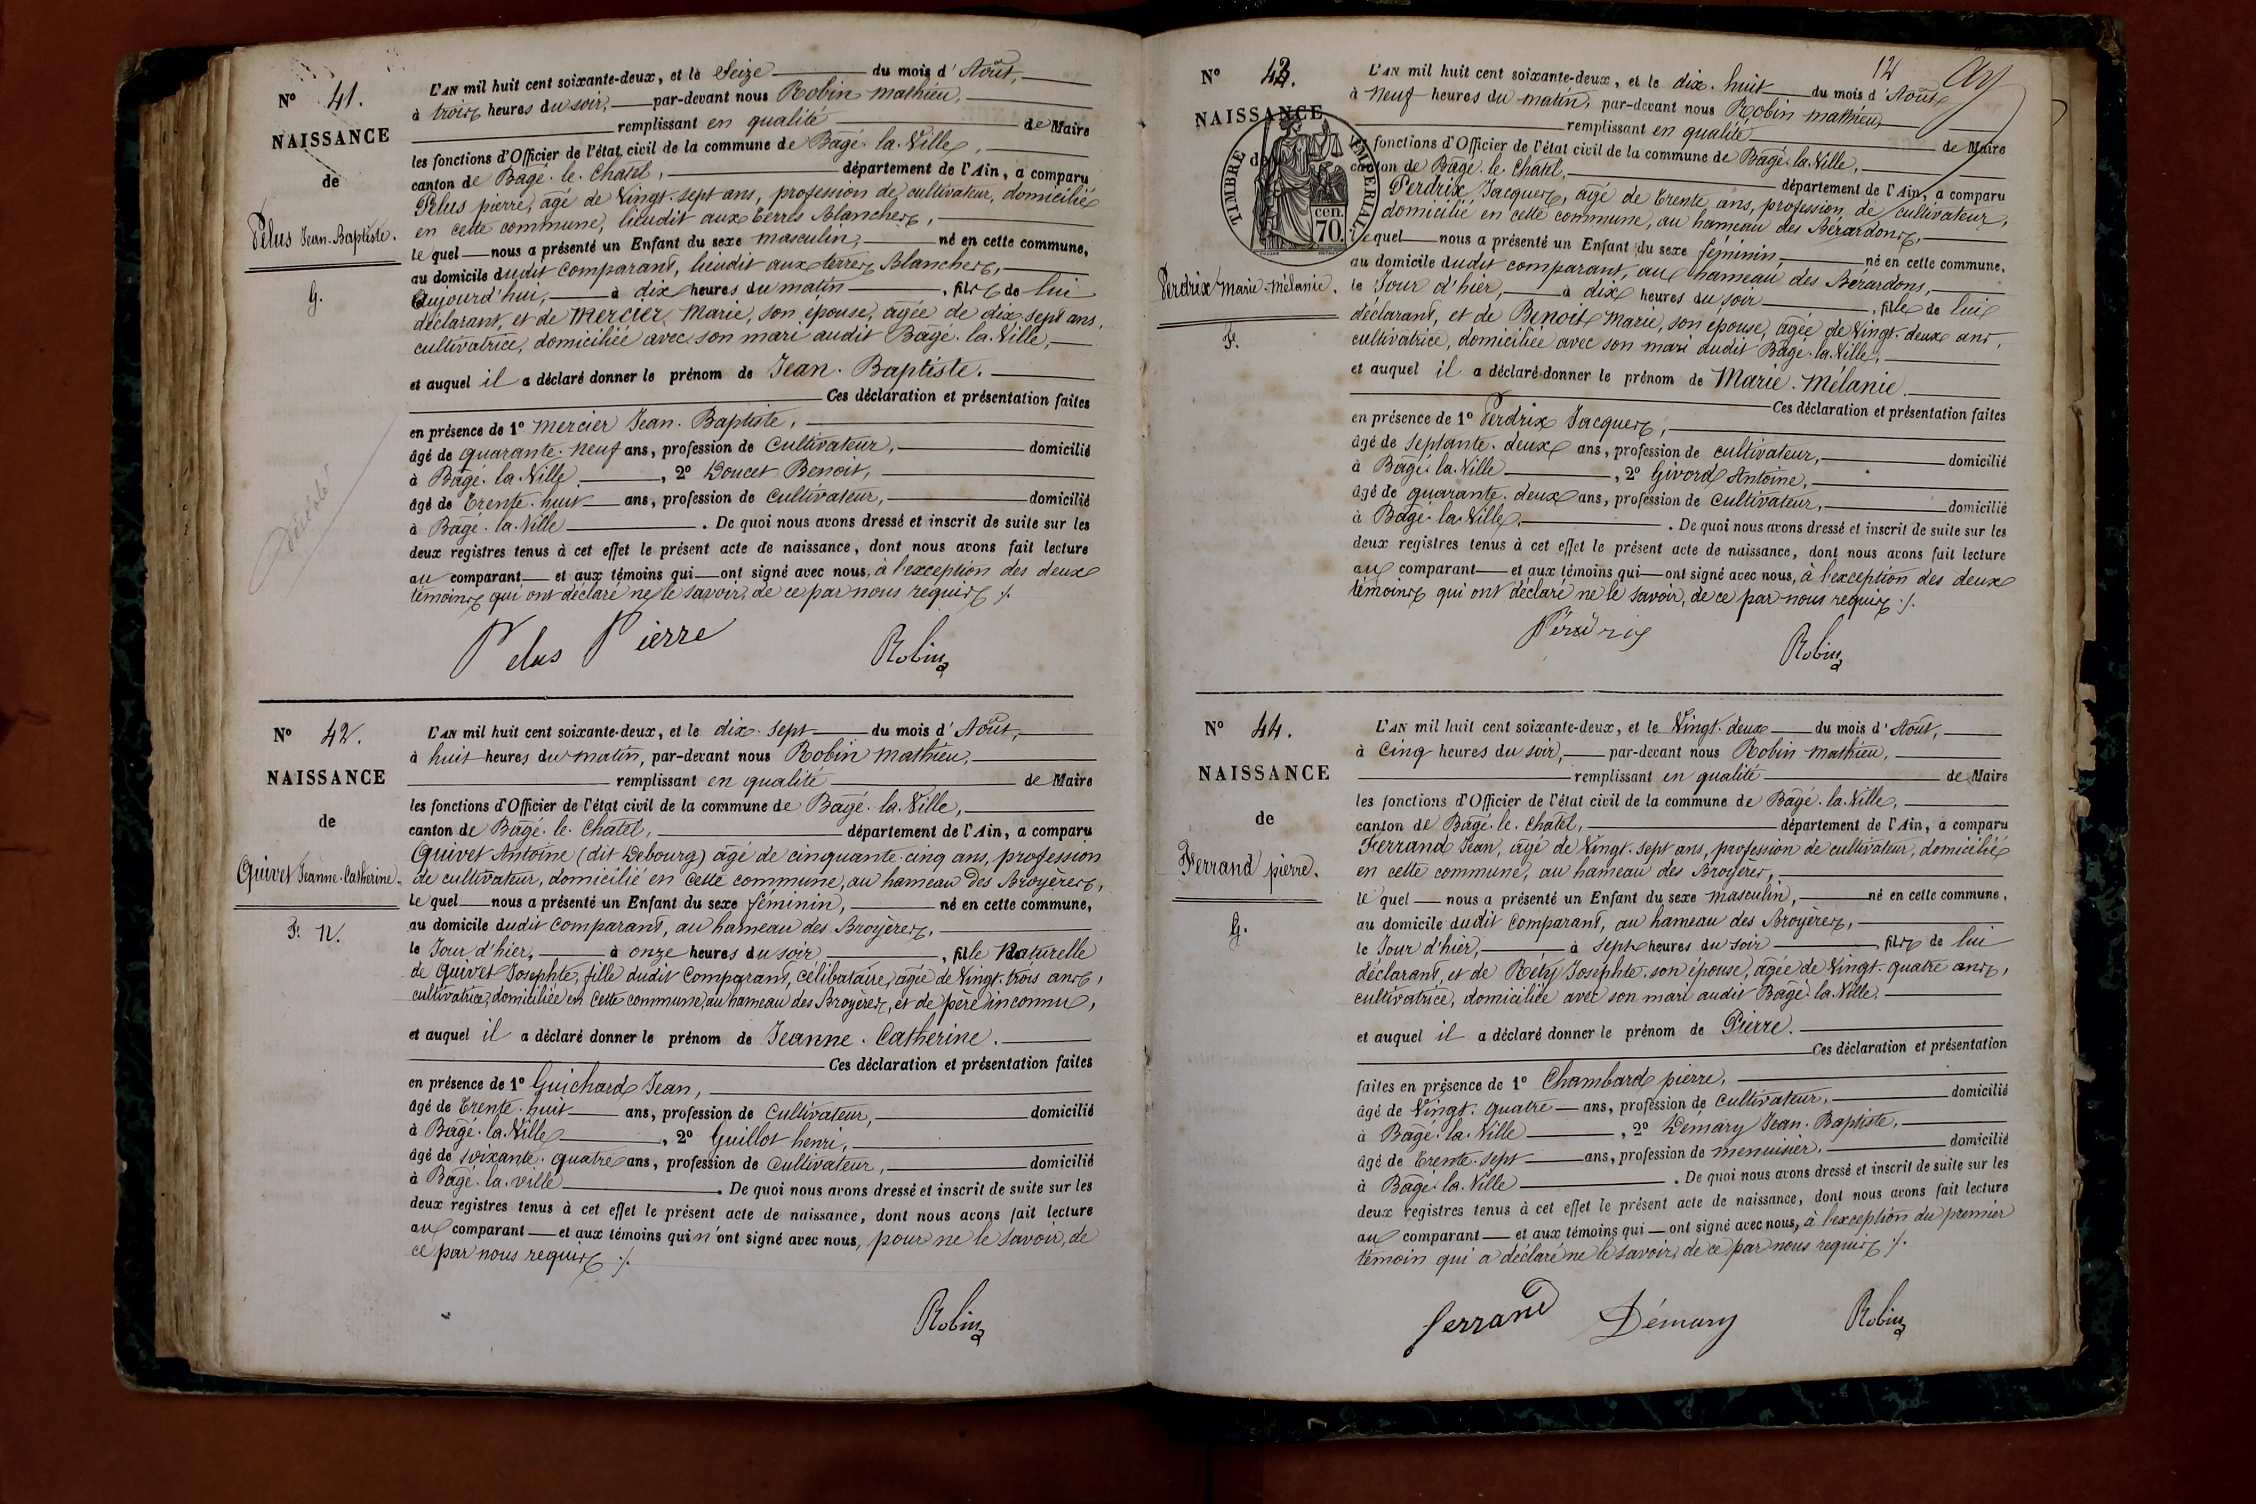 N° 41.
NAISSANCE
de
Pelus Jean-Baptiste.
G.
décédé
L'AN mil huit cent soixante-deux, et le Seize du mois d'Août,
à trois heures du soir, par-devant nous Robin mathieu,
remplissant en qualité de Maire
les fonctions d'Officier de l'état civil de la commune de Bagé-la-Ville,
canton de Bagé-le-Chatel, département de l'Ain, a comparu
Pelus pierre, agé de Vingt-sept ans, profession de cultivateur, domicilié
en cette commune, lieudit aux Terres Blanches,
le quel nous a présenté un Enfant du sexe masculin, né en cette commune,
au domicile dudit comparant, lieudit aux terres Blanches,
aujourd'hui, à dix heures du matin, fils de lui
déclarant, et de Mercier Marie, son épouse, agée de dix sept ans,
cultivatrice, domiciliée avec son mari audit Bagé-la-Ville,
et auquel il a déclaré donner le prénom de Jean-Baptiste.
Ces déclaration et présentation faites
en présence de 1° mercier Jean-Baptiste,
âgé de quarante-neuf ans, profession de Cultivateur, domicilié
à Bagé-la-Ville, 2° Doucet Benoit,
âgé de Trente-huit ans, profession de Cultivateur, domicilié
à Bagé-la-Ville. De quoi nous avons dressé et inscrit de suite sur les
deux registres tenus à cet effet le présent acte de naissance, dont nous avons fait lecture
au comparant et aux témoins qui ont signé avec nous, à l'exception des deux
témoins qui ont déclaré ne le savoir, de ce par nous requis ./.
Pelus Pierre Robin
N° 42.
NAISSANCE
de
Quivet Jeanne-Catherine.
F. N.
L'AN mil huit cent soixante-deux, et le dix-sept du mois d'Août,
à huit heures du matin, par-devant nous Robin mathieu,
remplissant en qualité de Maire
les fonctions d'Officier de l'état civil de la commune de Bagé-la-Ville,
canton de Bagé-le-Chatel, département de l'Ain, a comparu
Quivet Antoine (dit Debourg) agé de cinquante-cinq ans, profession
de cultivateur, domicilié en cette commune, au hameau des Broyères,
le quel nous a présenté un Enfant du sexe féminin, né en cette commune,
au domicile dudit comparant, au hameau des Broyères,
le Jour d'hier, à onze heures du soir, fille Naturelle
de Quivet Josephte, fille dudit Comparant, célibataire, agée de Vingt-trois ans,
cultivatrice, domiciliée en cette commune, au hameau des Broyères, et de père inconnu,
et auquel il a déclaré donner le prénom de Jeanne-Catherine.
Ces déclaration et présentation faites
en présence de 1° Guichard Jean,
âgé de Trente-huit ans, profession de Cultivateur, domicilié
à Bagé-la-Ville, 2° Guillot henri,
âgé de soixante-quatre ans, profession de Cultivateur, domicilié
à Bagé-la-ville. De quoi nous avons dressé et inscrit de suite sur les
deux registres tenus à cet effet le présent acte de naissance, dont nous avons fait lecture
au comparant et aux témoins qui n'ont signé avec nous, pour ne le savoir, de
ce par nous requis ./.
Robin
12
N° 43.
NAISSANCE
de
TIMBRE IMPERIAL
70 cen.
Perdrix Marie-Mélanie.
F.
L'AN mil huit cent soixante-deux, et le dix-huit du mois d'Août,
à Neuf heures du matin, par-devant nous Robin mathieu,
remplissant en qualité de Maire
les fonctions d'Officier de l'état civil de la commune de Bagé-la-Ville,
canton de Bagé-le-Chatel, département de l'Ain, a comparu
Perdrix Jacques, agé de Trente ans, profession de cultivateur,
domicilié en cette commune, au hameau des Bérardons,
lequel nous a présenté un Enfant du sexe féminin, né en cette commune,
au domicile dudit comparant, au hameau des Bérardons,
le Jour d'hier, à dix heures du soir, fille de lui
déclarant, et de Benoit Marie, son épouse, agée de Vingt-deux ans,
cultivatrice, domiciliée avec son mari audit Bagé-la-Ville,
et auquel il a déclaré donner le prénom de Marie-Mélanie
Ces déclaration et présentation faites
en présence de 1° Perdrix Jacques,
âgé de Septante-deux ans, profession de cultivateur, domicilié
à Bagé-la-Ville, 2° Givord Antoine,
âgé de quarante-deux ans, profession de Cultivateur, domicilié
à Bagé-la-Ville. De quoi nous avons dressé et inscrit de suite sur les
deux registres tenus à cet effet le présent acte de naissance, dont nous avons fait lecture
au comparant et aux témoins qui ont signé avec nous, à l'exception des deux
témoins qui ont déclaré ne le savoir, de ce par nous requis ./.
Robin
N° 44.
NAISSANCE
de
Ferrand pierre.
G.
L'AN mil huit cent soixante-deux, et le Vingt-deux du mois d'Août,
à Cinq heures du soir, par-devant nous Robin mathieu,
remplissant en qualité de Maire
les fonctions d'Officier de l'état civil de la commune de Bagé-la-Ville,
canton de Bagé-le-Chatel, département de l'Ain, a comparu
Ferrand Jean, agé de Vingt-sept ans, profession de cultivateur, domicilié
en cette commune, au hameau des Broyères,
le quel nous a présenté un Enfant du sexe masculin, né en cette commune,
au domicile dudit comparant, au hameau des Broyères,
le Jour d'hier, à sept heures du soir, fils de lui
déclarant, et de Réty Josephte, son épouse, agée de Vingt-quatre ans,
cultivatrice, domiciliée avec son mari audit Bagé-la-Ville.
et auquel il a déclaré donner le prénom de Pierre.
Ces déclaration et présentation
faites en présence de 1° Chambard pierre,
âgé de Vingt-quatre ans, profession de Cultivateur, domicilié
à Bagé-la-Ville, 2° Demary Jean-Baptiste,
âgé de Trente-sept ans, profession de menuisier, domicilié
à Bagé-la-Ville. De quoi nous avons dressé et inscrit de suite sur les
deux registres tenus à cet effet le présent acte de naissance, dont nous avons fait lecture
au comparant et aux témoins qui ont signé avec nous, à l'exception du premier
témoin qui a déclaré ne le savoir, de ce par nous requis ./.
ferrand Démary Robin